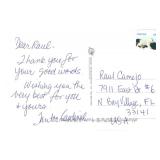 Dear Raul.
Thank you for
your good words
Wishing you the
very best for you
+ yours
Raul Camejo
7911 East Dr #6
N Bay Village, FL
33141
USA